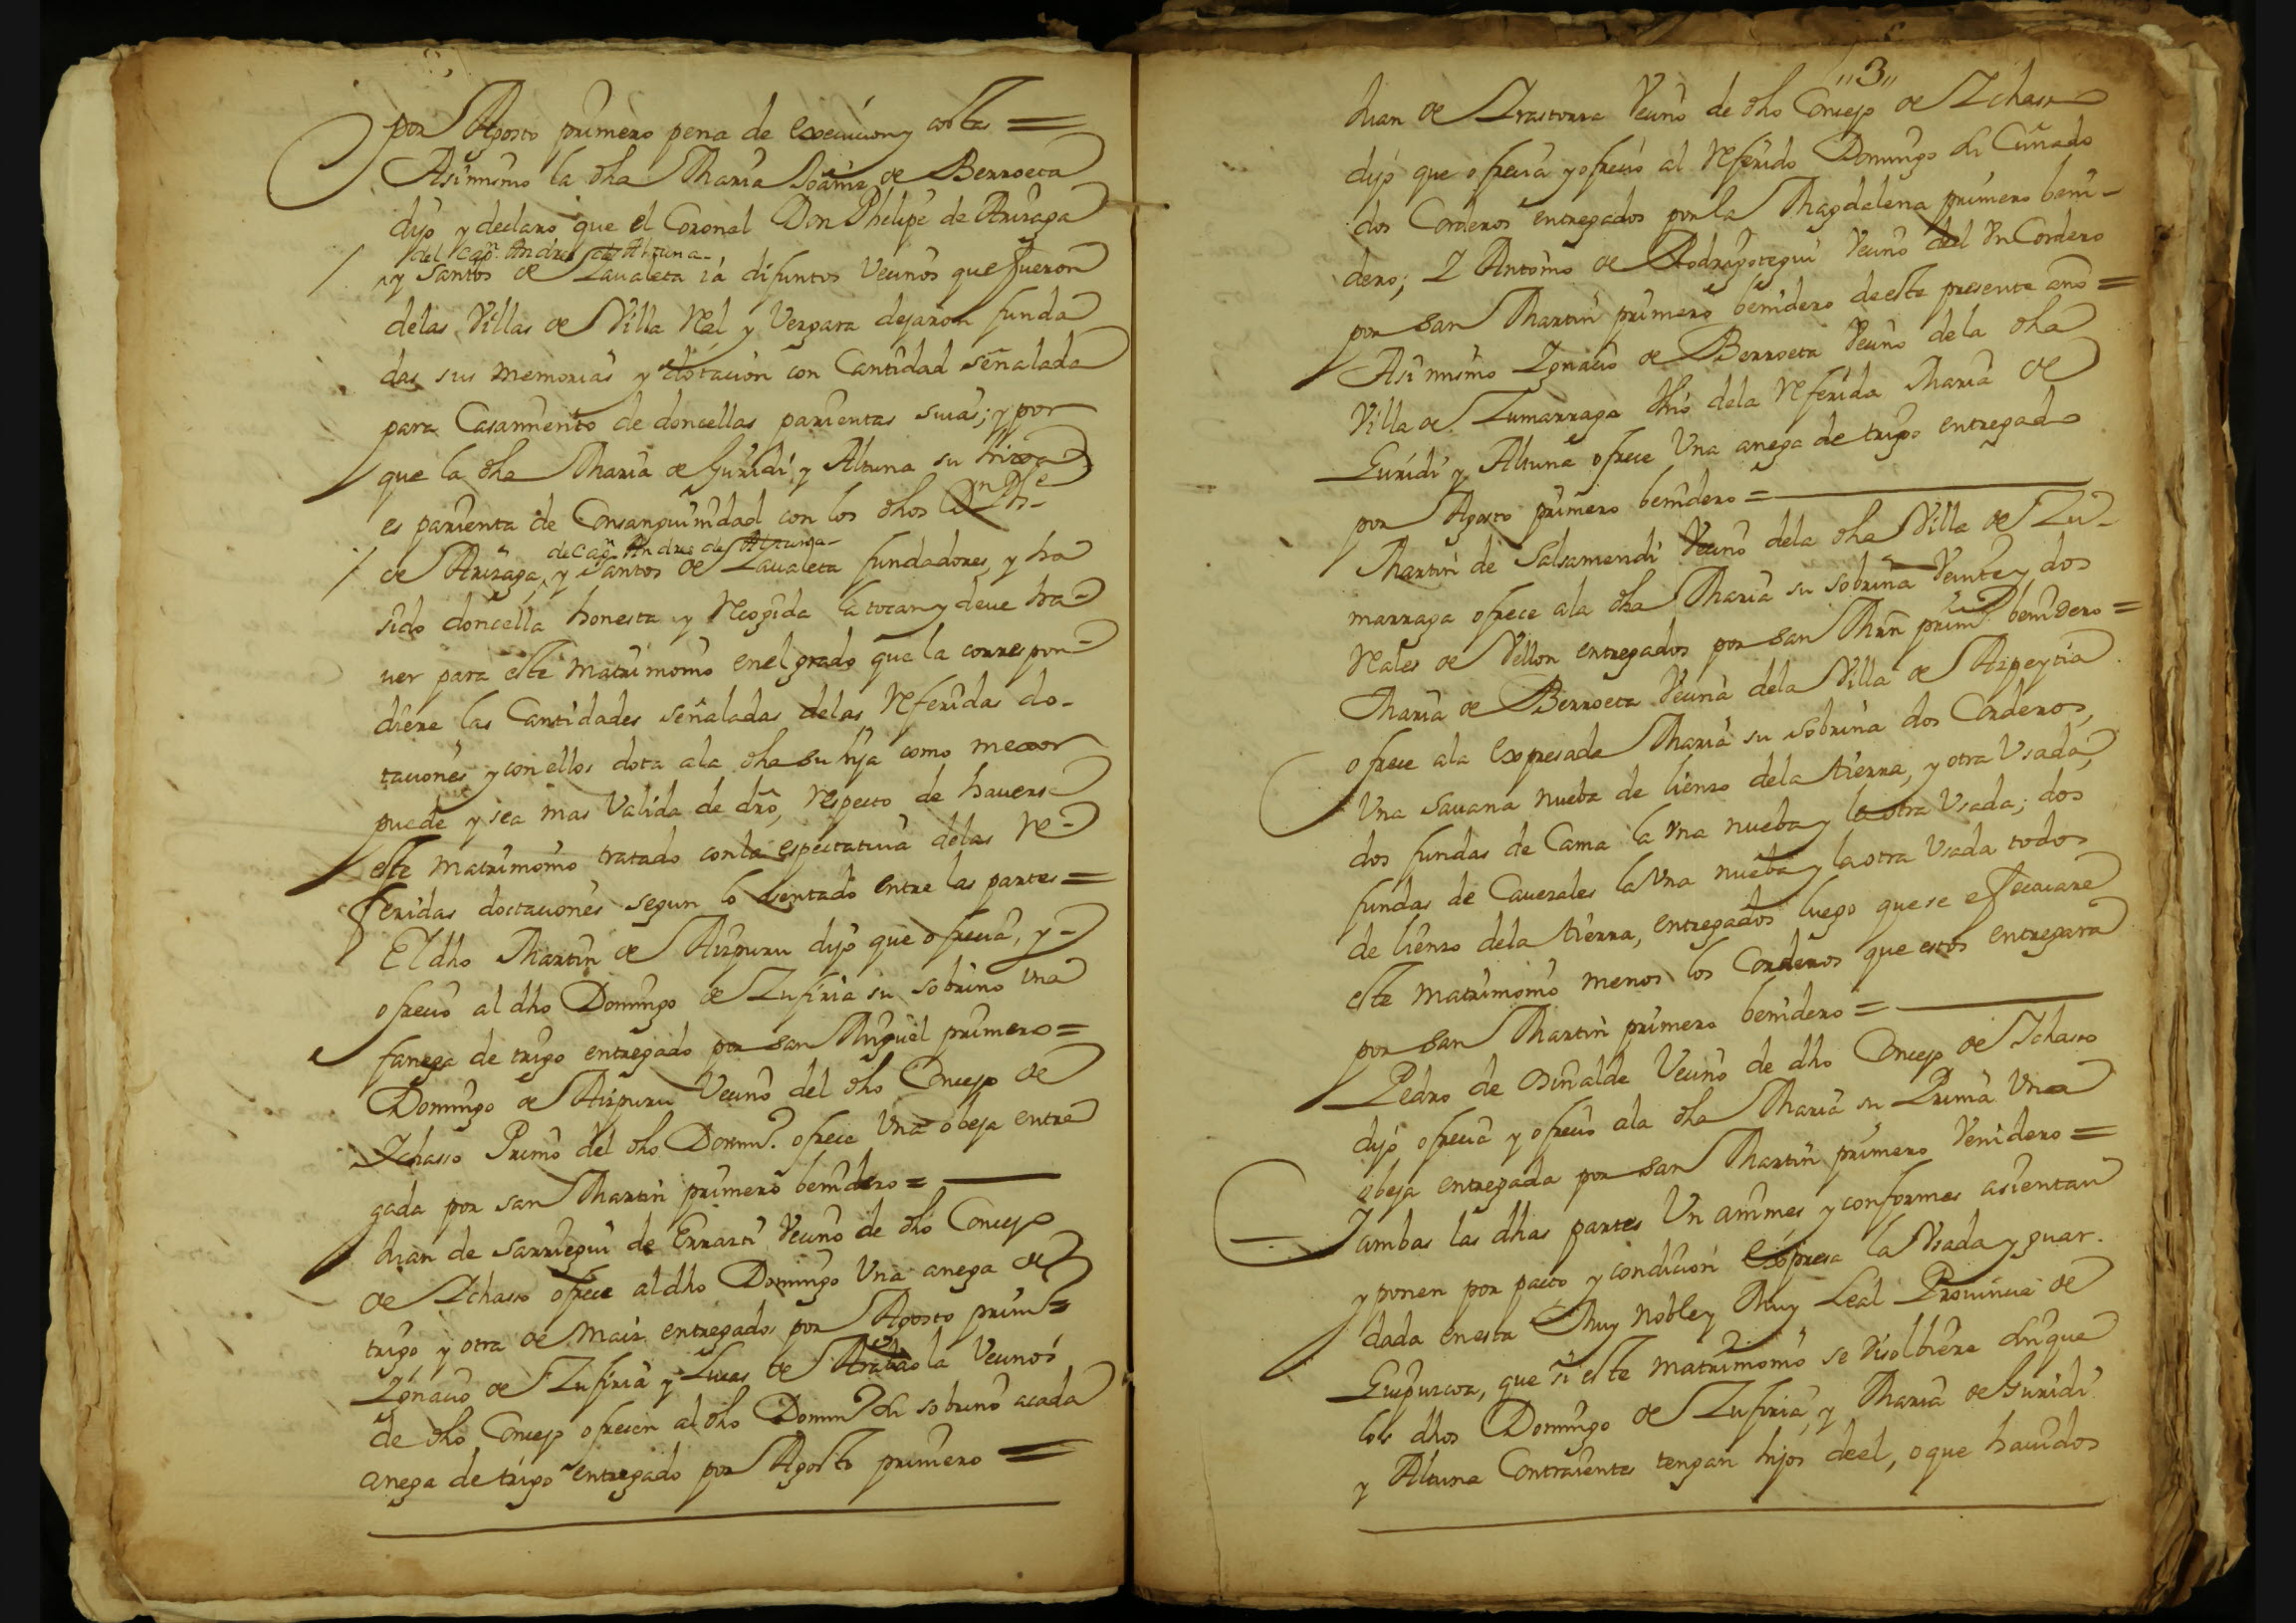 por Agosto primero pena de execucion y costas =
Asimismo la dha Maria Joaniz de Berroeta
dijo y declaro que el Coronel Don Phelipe de Arizaga
del Capn. Andres de Altuna
y Santos de Zaualeta ia difuntos Vecinos que fueron
delas Villas de Villa Real y Vergara dejaron funda
das sus memorias y dotacion con Cantidad señalada
para Casamiento de doncellas parientas suias; y por
que la dha Maria de Guridi y Altuna su hixa
es parienta de Consanguinidad con los dhos Dn Phe
de Capn. Andres de Altuna
de Arizaga, y Santos de Zaualeta fundadores, y ha
sido doncella honesta y Recogida la tocan y deue ha-
uer para este matrimonio en el grado que la correspon-
diere las Cantidades señaladas delas Referidas do-
taciones y con ellos dota ala dha su hija como mexor
puede y sea mas Valida de dro, respecto de hauerse
este matrimonio tratado con la espectatiua delas Re-
feridas doctaciones segun lo asentado entre las partes =
El dho Martin de Aizpuru dijo que ofrecia, y
ofrecio al dho Domingo de Zufiria su sobrino una
fanega de trigo entregado por san Miguel primero =
Domingo de Aizpuru Vecino del dho Concejo de
Ichasso Primo del dho Domingo. ofrece Vna obeja entre
gada por san Martin primero benidero =
Juan de Sarriegui de Errarti Vecino de dho Concejo
de Ichasso ofrece al dho Domingo Vna anega de
trigo y otra de maiz entregados por Agosto prim° =
Ignacio de Zufiria y Lucas de Arabaola Vecinos
de dho Concejo ofrecen al dho Domingo su sobrino a cada
anega de trigo entregado por Agosto primero =
"3"
Juan de Irastorza Vecino de dho Concejo de Ichasso
dijo que ofrecia y ofrecio al Referido Domingo su Cuñado
dos Corderos entregados por la Magdalena primero beni-
dero; I Antonio de Rodrigotegui Vecino del Vn Cordero
por san Martin primero benidero de este presente año =
Asimismo Ignacio de Berroeta Vecino dela dha
Villa de Zumarraga thio dela Referida Maria de
Guridi y Altuna ofrece Vna anega de trigo entregado
por Agosto primero benidero =
Martin de Salsamendi Vecino dela dha Villa de Zu-
marraga ofrece ala dha Maria su sobrina Veinte y dos
Reales de Vellon entregados por san Mrn prim° benidero =
Maria de Berroeta Vecina dela Villa de Azpeytia
ofrece ala Expresada Maria su sobrina dos Corderos,
Vna sauana nueba de lienzo dela tierra, y otra Vsada,
dos fundas de Cama la vna nueba y la otra Vsada; dos
fundas de Cauezales la Vna nueba y la otra Vsada todos
de lienzo dela tierra, entregados luego que se efectuare
este matrimonio menos los Corderos que estos entregara
por san Martin primero benidero =
Pedro de Osinalde Vecino de dho Concejo de Ichasso
dijo ofrecia y ofrecio ala dha Maria su Prima Vna
obeja entregada por san Martin primero Venidero =
I ambas las dhas partes Vn animes y conformes asientan
y ponen por pacto y condicion Expresa la Vsada y guar-
dada en esta Muy Noble y Muy Leal Prouincia de
Guipuzcoa, que si este matrimonio se disolbiere sin que
los dhos Domingo de Zufiria, y Maria de Guridi
y Altuna Contraientes tengan hijos de el, o que hauidos